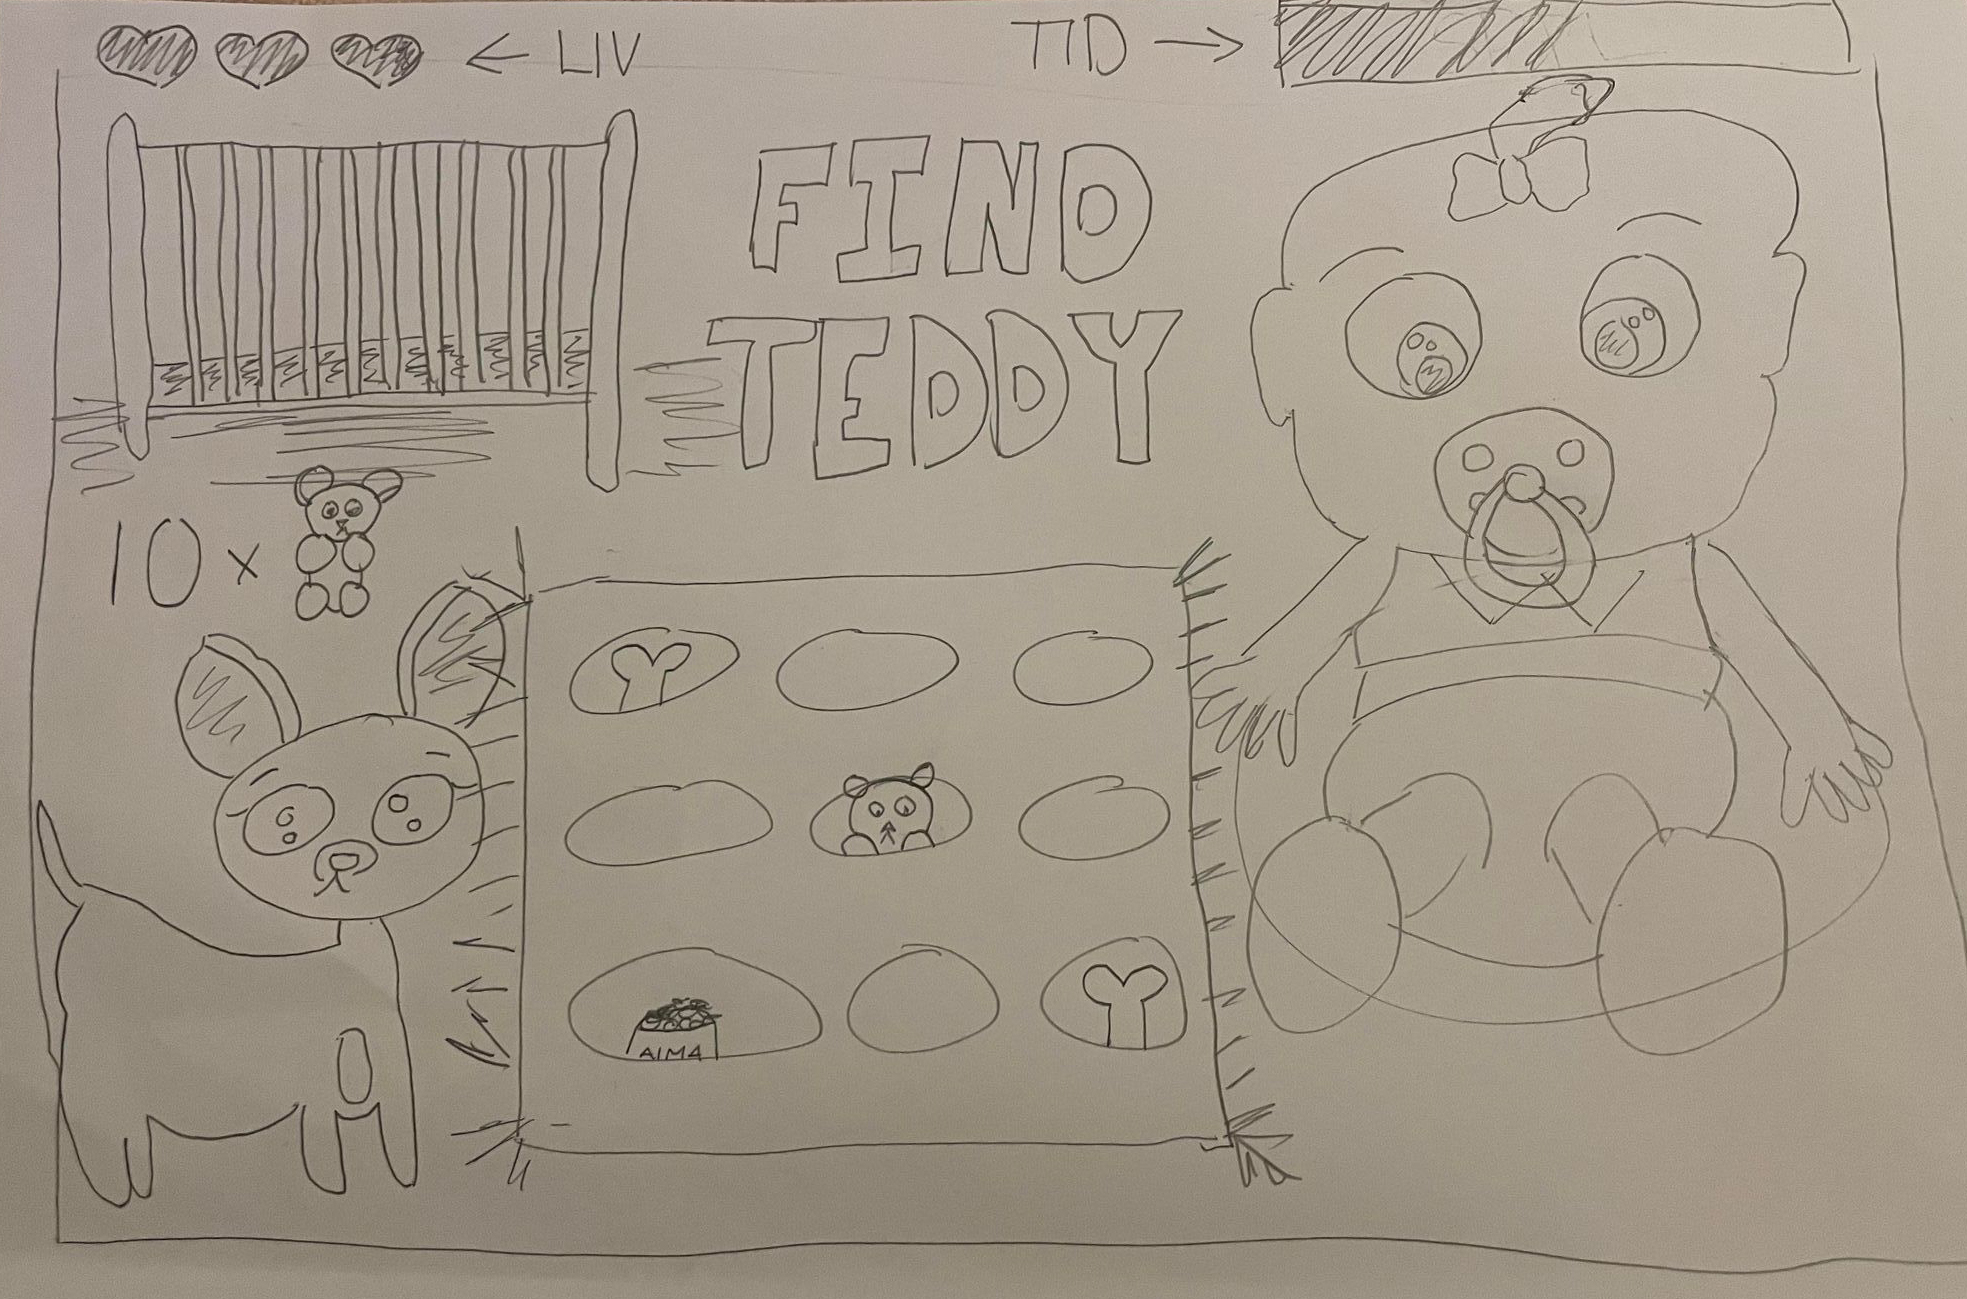 ← LIV
TID →
FIND
TEDDY
10 x
AIMA